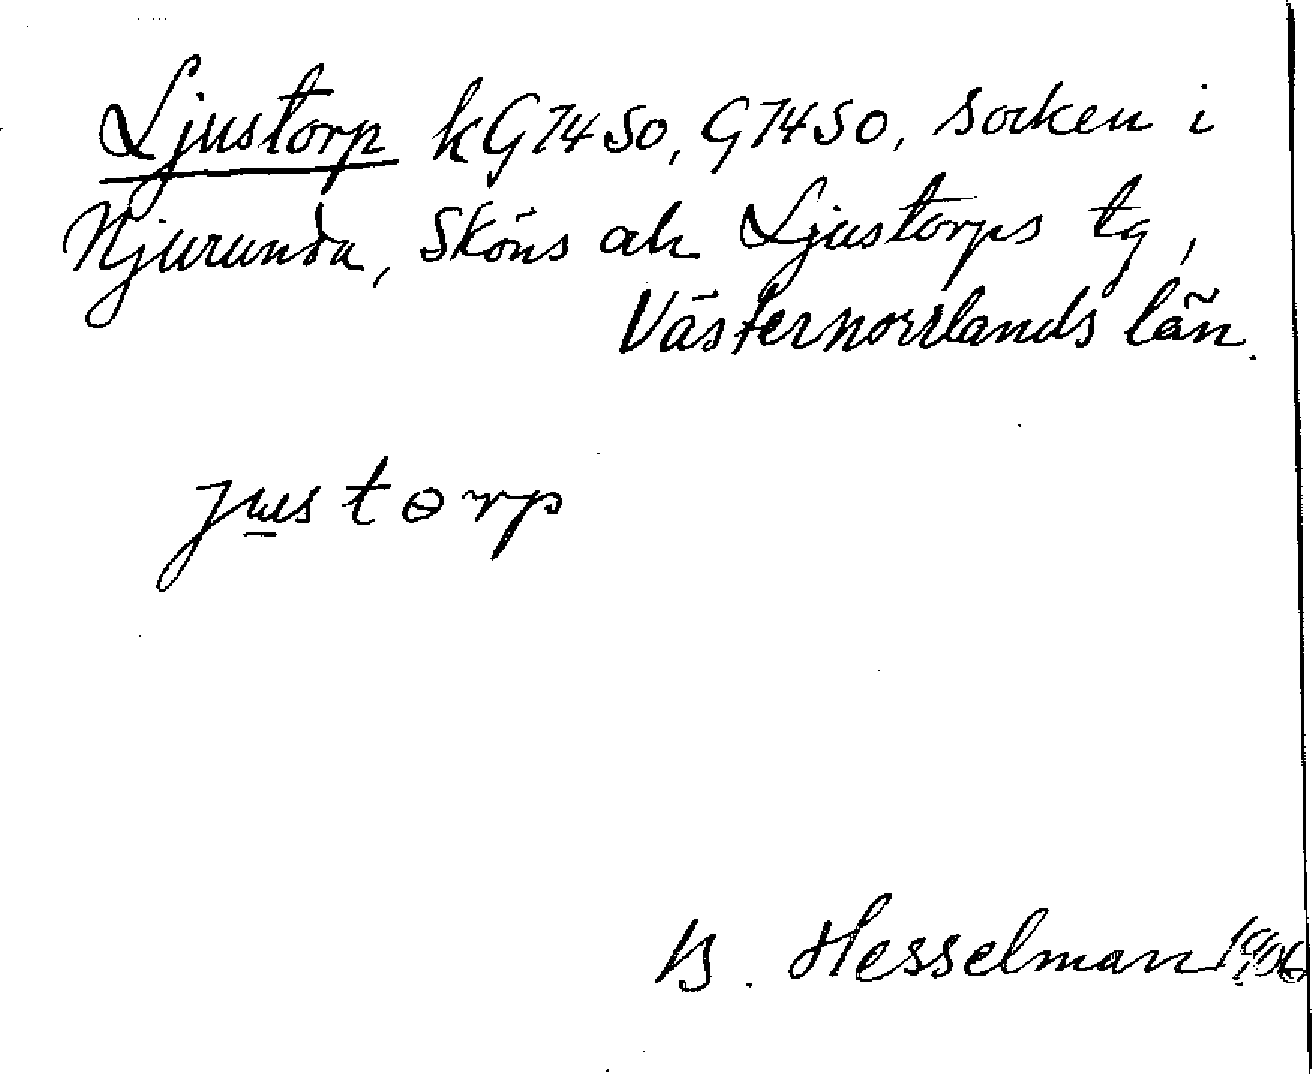 Ljustorp kG7450, G7450, socken i
Njurunda, Sköns och Ljustorps tg,
Västernorrlands län.
justɵrp
B. Hesselman 1906